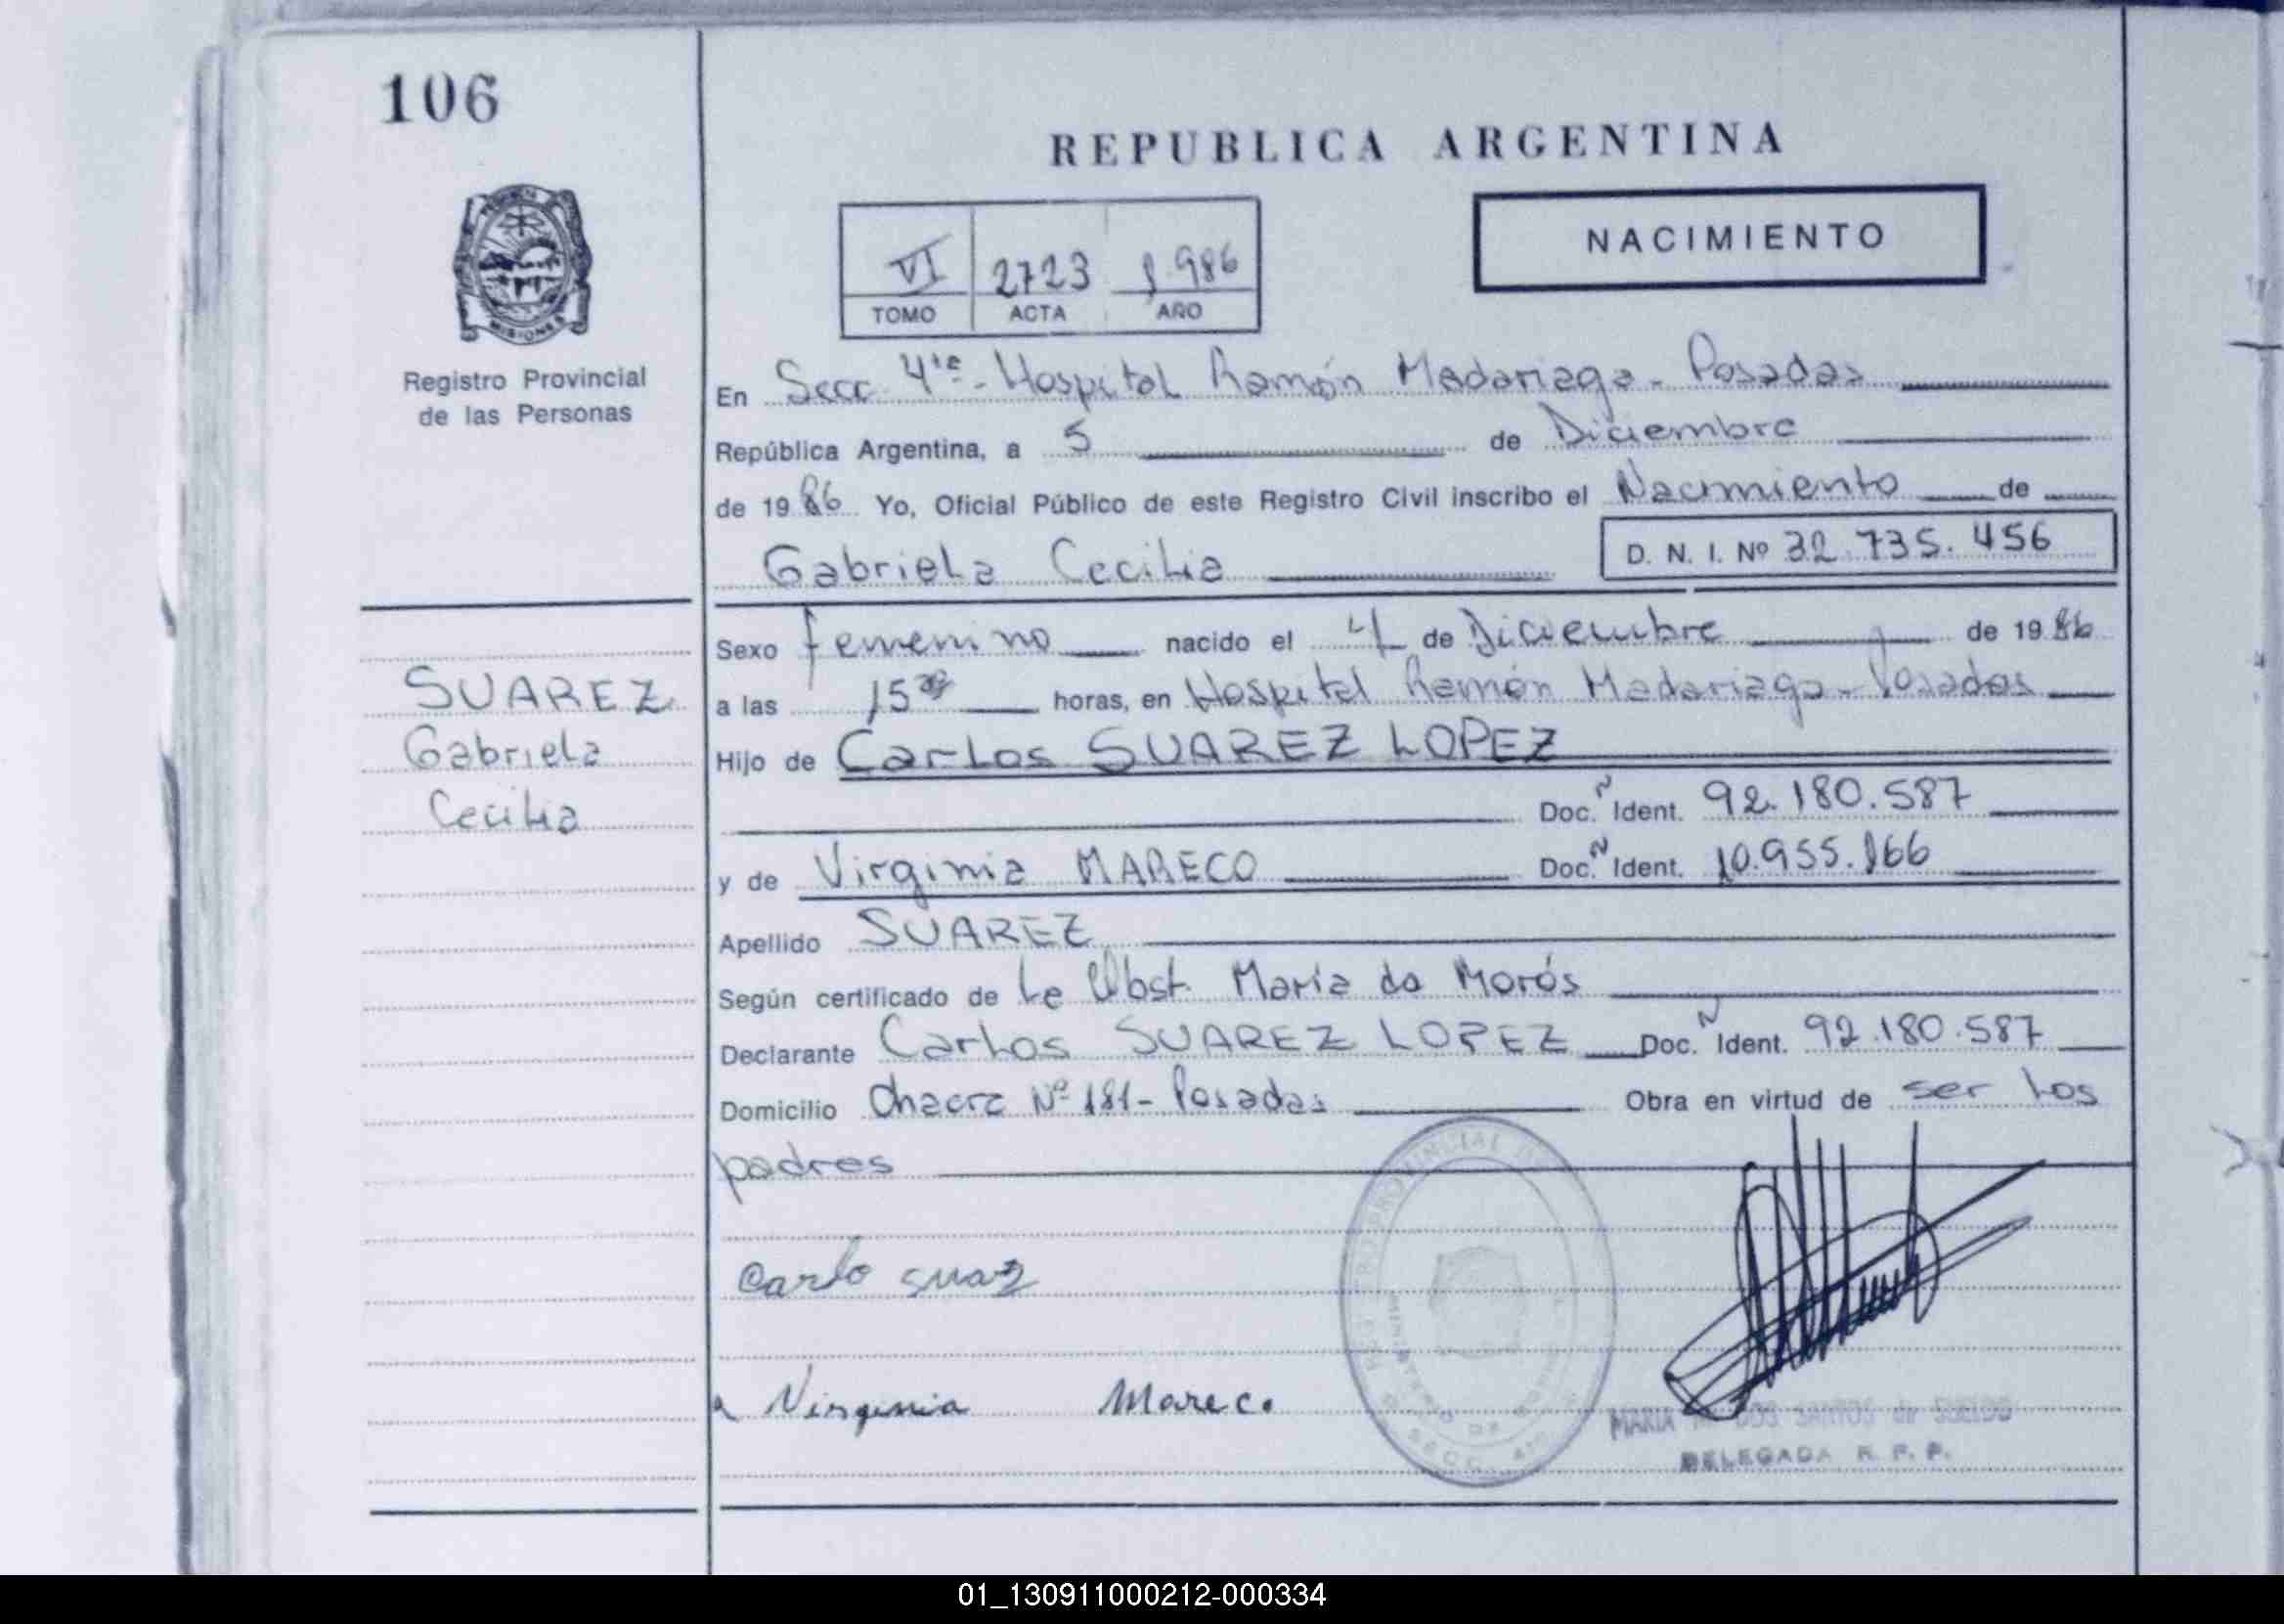 106
REPUBLICA ARGENTINA
NACIMIENTO
VI 2723 1986
TOMO ACTA AÑO
Registro Provincial
de las Personas
MISIONES
En Secc 4ta - Hospital Ramón Madariaga - Posadas
República Argentina, a 5 de Diciembre
de 19 86 Yo, Oficial Público de este Registro Civil inscribo el Nacimiento de
Gabriela Cecilia D. N. I. Nº 32.735.456
Sexo femenino nacido el 4 de Diciembre de 19 86
a las 15 horas, en Hospital Ramón Madariaga - Posadas
Hijo de Carlos SUAREZ LOPEZ
Doc. N Ident. 92.180.587
y de Virginia MARECO Doc. N Ident. 10.955.166
Apellido SUAREZ
Según certificado de La Obst. María de Morós
Declarante Carlos SUAREZ LOPEZ Doc. N Ident. 92.180.587
Domicilio Chacra Nº 181 - Posadas Obra en virtud de ser los
padres
SUAREZ
Gabriela
Cecilia
Carlo suaz
Virginia Mareco
MARIA DOS SANTOS de
DELEGADA R. P. P.
01_130911000212-000334